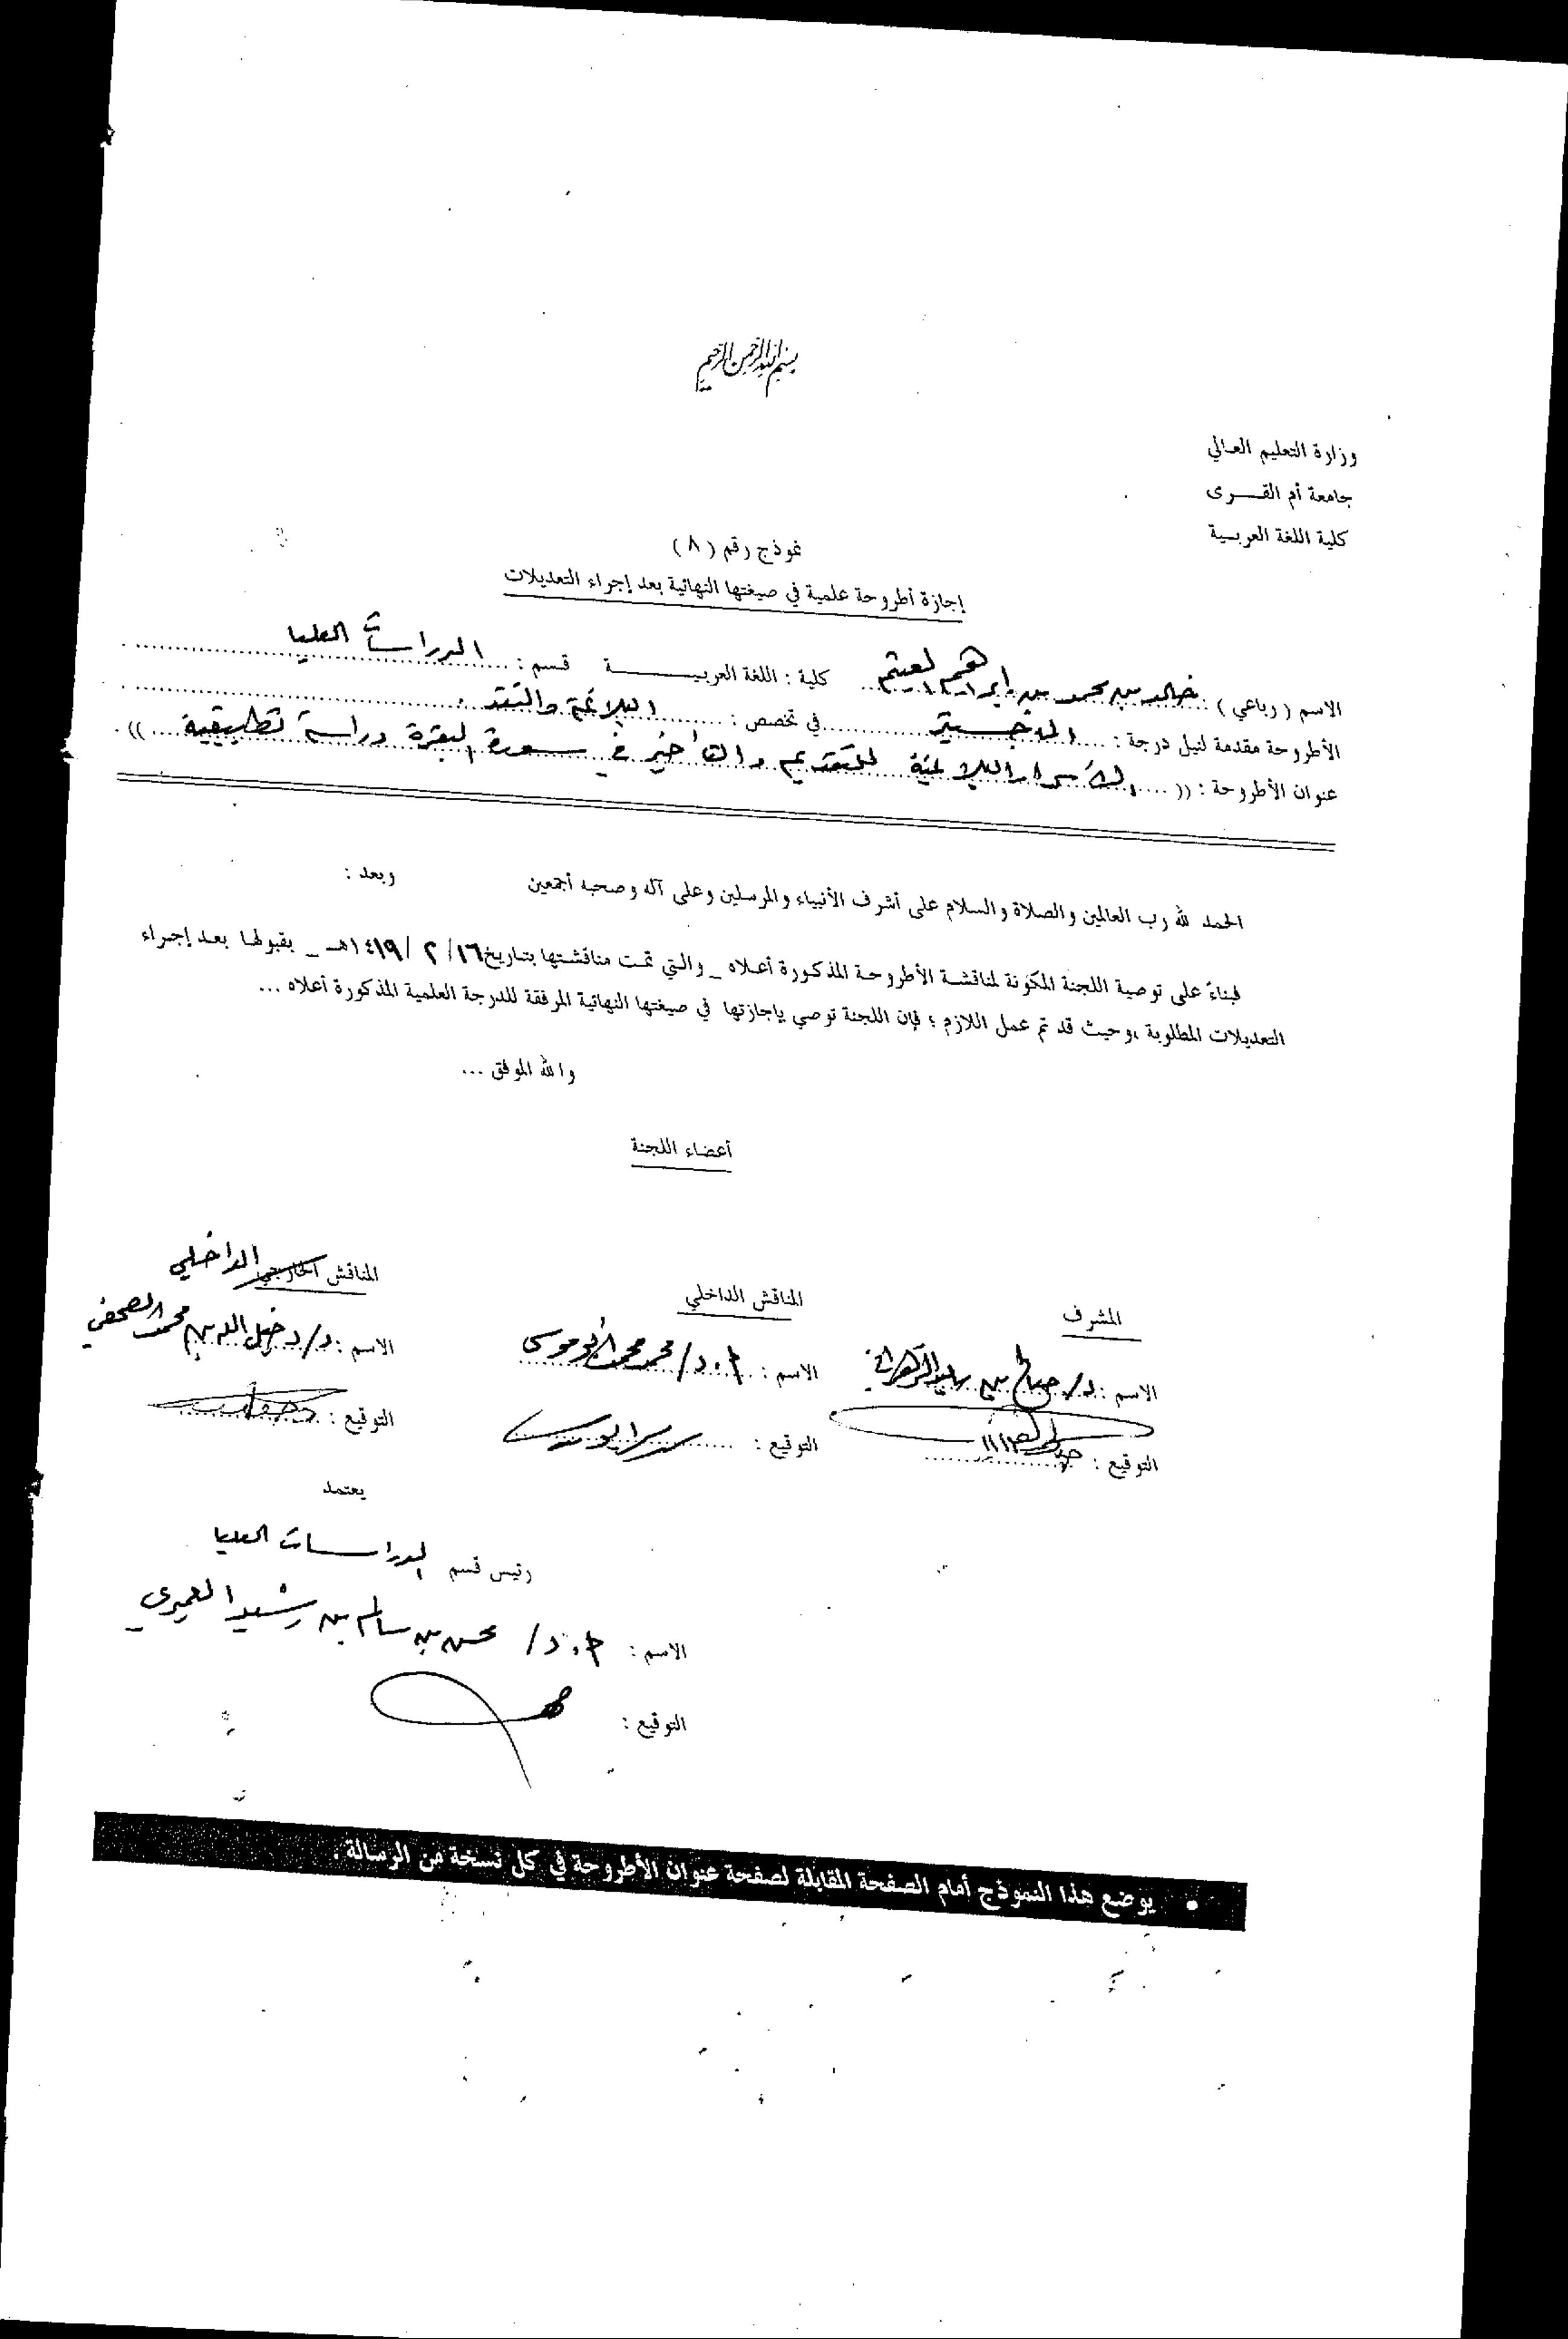 بسم الله الرحمن الرحيم
وزارة التعليم العالي
جامعة أم القـــرى
كلية اللغة العربـية
نموذج رقم ( ٨ )
إجازة أطروحة علمية في صيغتها النهائية بعد إجراء التعديلات
الاسم ( رباعي ) : خالد بن محمد بن إبراهيم العثيم كلية : اللغة العربيـــــة قسم : الدراسات العليا
الأطروحة مقدمة لنيل درجة : الماجستير في تخصص : البلاغة والنقد .
عنوان الأطروحة : (( الأسرار البلاغية للتقديم والتأخير في سورة البقرة دراسة تطبيقية )) .
الحمد لله رب العالمين والصلاة والسلام على أشرف الأنبياء والمرسلين وعلى آله وصحبه أجمعين وبعد :
فبناءً على توصية اللجنة المكونة لمناقشة الأطروحة المذكورة أعلاه _ والتي تمت مناقشتها بتاريخ ١٦ / ٢ / ١٤١٩هـ _ بقبولها بعد إجراء
التعديلات المطلوبة ،وحيث قد تم عمل اللازم ؛ فإن اللجنة توصي بإجازتها في صيغتها النهائية المرفقة للدرجة العلمية المذكورة أعلاه ...
والله الموفق ...
أعضاء اللجنة
المشرف المناقش الداخلي المناقش الخارجي الداخلي
الاسم : د/ صالح بن سعيد الزهراني الاسم : أ.د/ محمد محمد أبو موسى الاسم : د/ دخيل الله بن محمد الصحفي
التوقيع : التوقيع : التوقيع :
يعتمد
رئيس قسم الدراسات العليا
الاسم : أ.د/ محسن بن سالم بن رشيد العميري
التوقيع :
• يوضع هذا النموذج أمام الصفحة المقابلة لصفحة عنوان الأطروحة في كل نسخة من الرسالة .